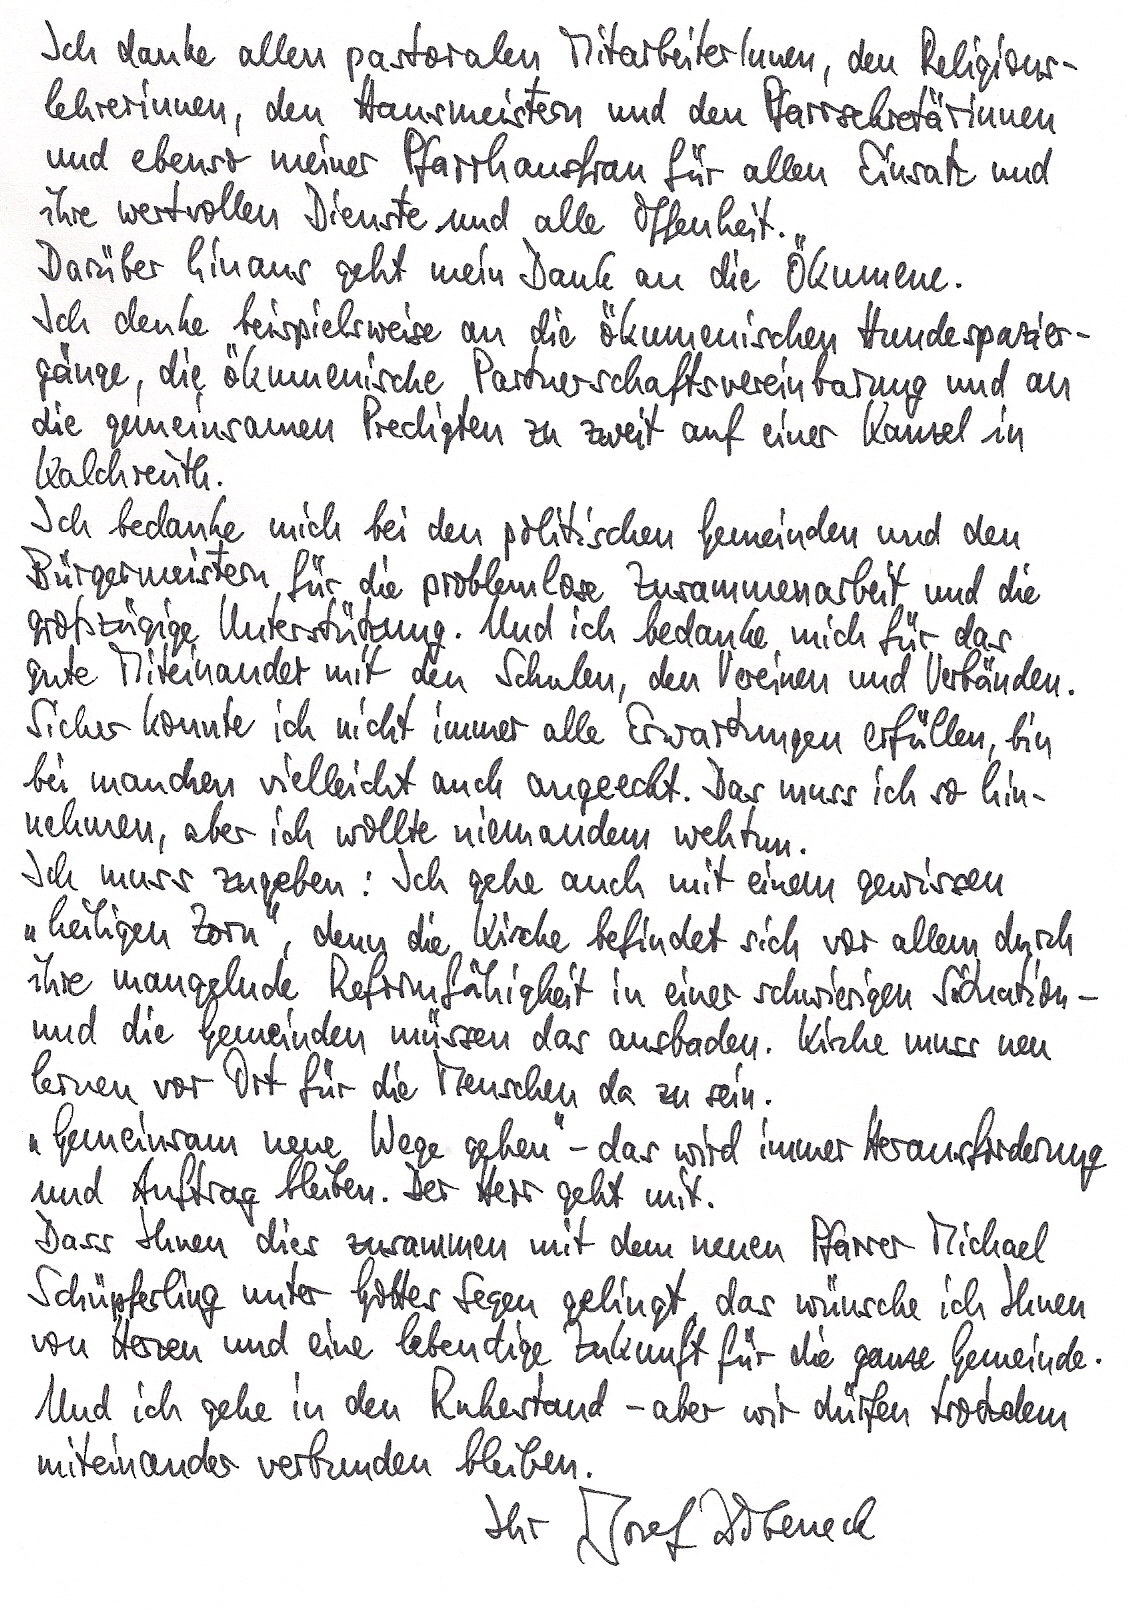 Ich danke allen pastoralen MitarbeiterInnen, den Religions-
lehrerinnen, den Hausmeistern und den Pfarrsekretärinnen
und ebenso meiner Pfarrhausfrau für allen Einsatz und
ihre wertvollen Dienste und alle Offenheit.
Darüber hinaus geht mein Dank an die Ökumene.
Ich denke beispielsweise an die ökumenischen Hundespazier-
gänge, die ökumenische Partnerschaftsvereinbarung und an
die gemeinsamen Predigten zu zweit auf einer Kanzel in
Kalchreuth.
Ich bedanke mich bei den politischen Gemeinden und den
Bürgermeistern für die problemlose Zusammenarbeit und die
großzügige Unterstützung. Und ich bedanke mich für das
gute Miteinander mit den Schulen, den Vereinen und Verbänden.
Sicher konnte ich nicht immer alle Erwartungen erfüllen, bin
bei manchen vielleicht auch angeeckt. Das muss ich so hin-
nehmen, aber ich wollte niemandem wehtun.
Ich muss zugeben: Ich gehe auch mit einem gewissen
„heiligen Zorn“, denn die Kirche befindet sich vor allem durch
ihre mangelnde Reformfähigkeit in einer schwierigen Situation –
und die Gemeinden müssen das ausbaden. Kirche muss neu
lernen vor Ort für die Menschen da zu sein.
„Gemeinsam neue Wege gehen“ – das wird immer Herausforderung
und Auftrag bleiben. Der Herr geht mit.
Dass Ihnen dies zusammen mit dem neuen Pfarrer Michael
Schüpferling unter Gottes Segen gelingt, das wünsche ich Ihnen
von Herzen und eine lebendige Zukunft für die ganze Gemeinde.
Und ich gehe in den Ruhestand – aber wir dürfen trotzdem
miteinander verbunden bleiben.
Ihr Josef Dobeneck